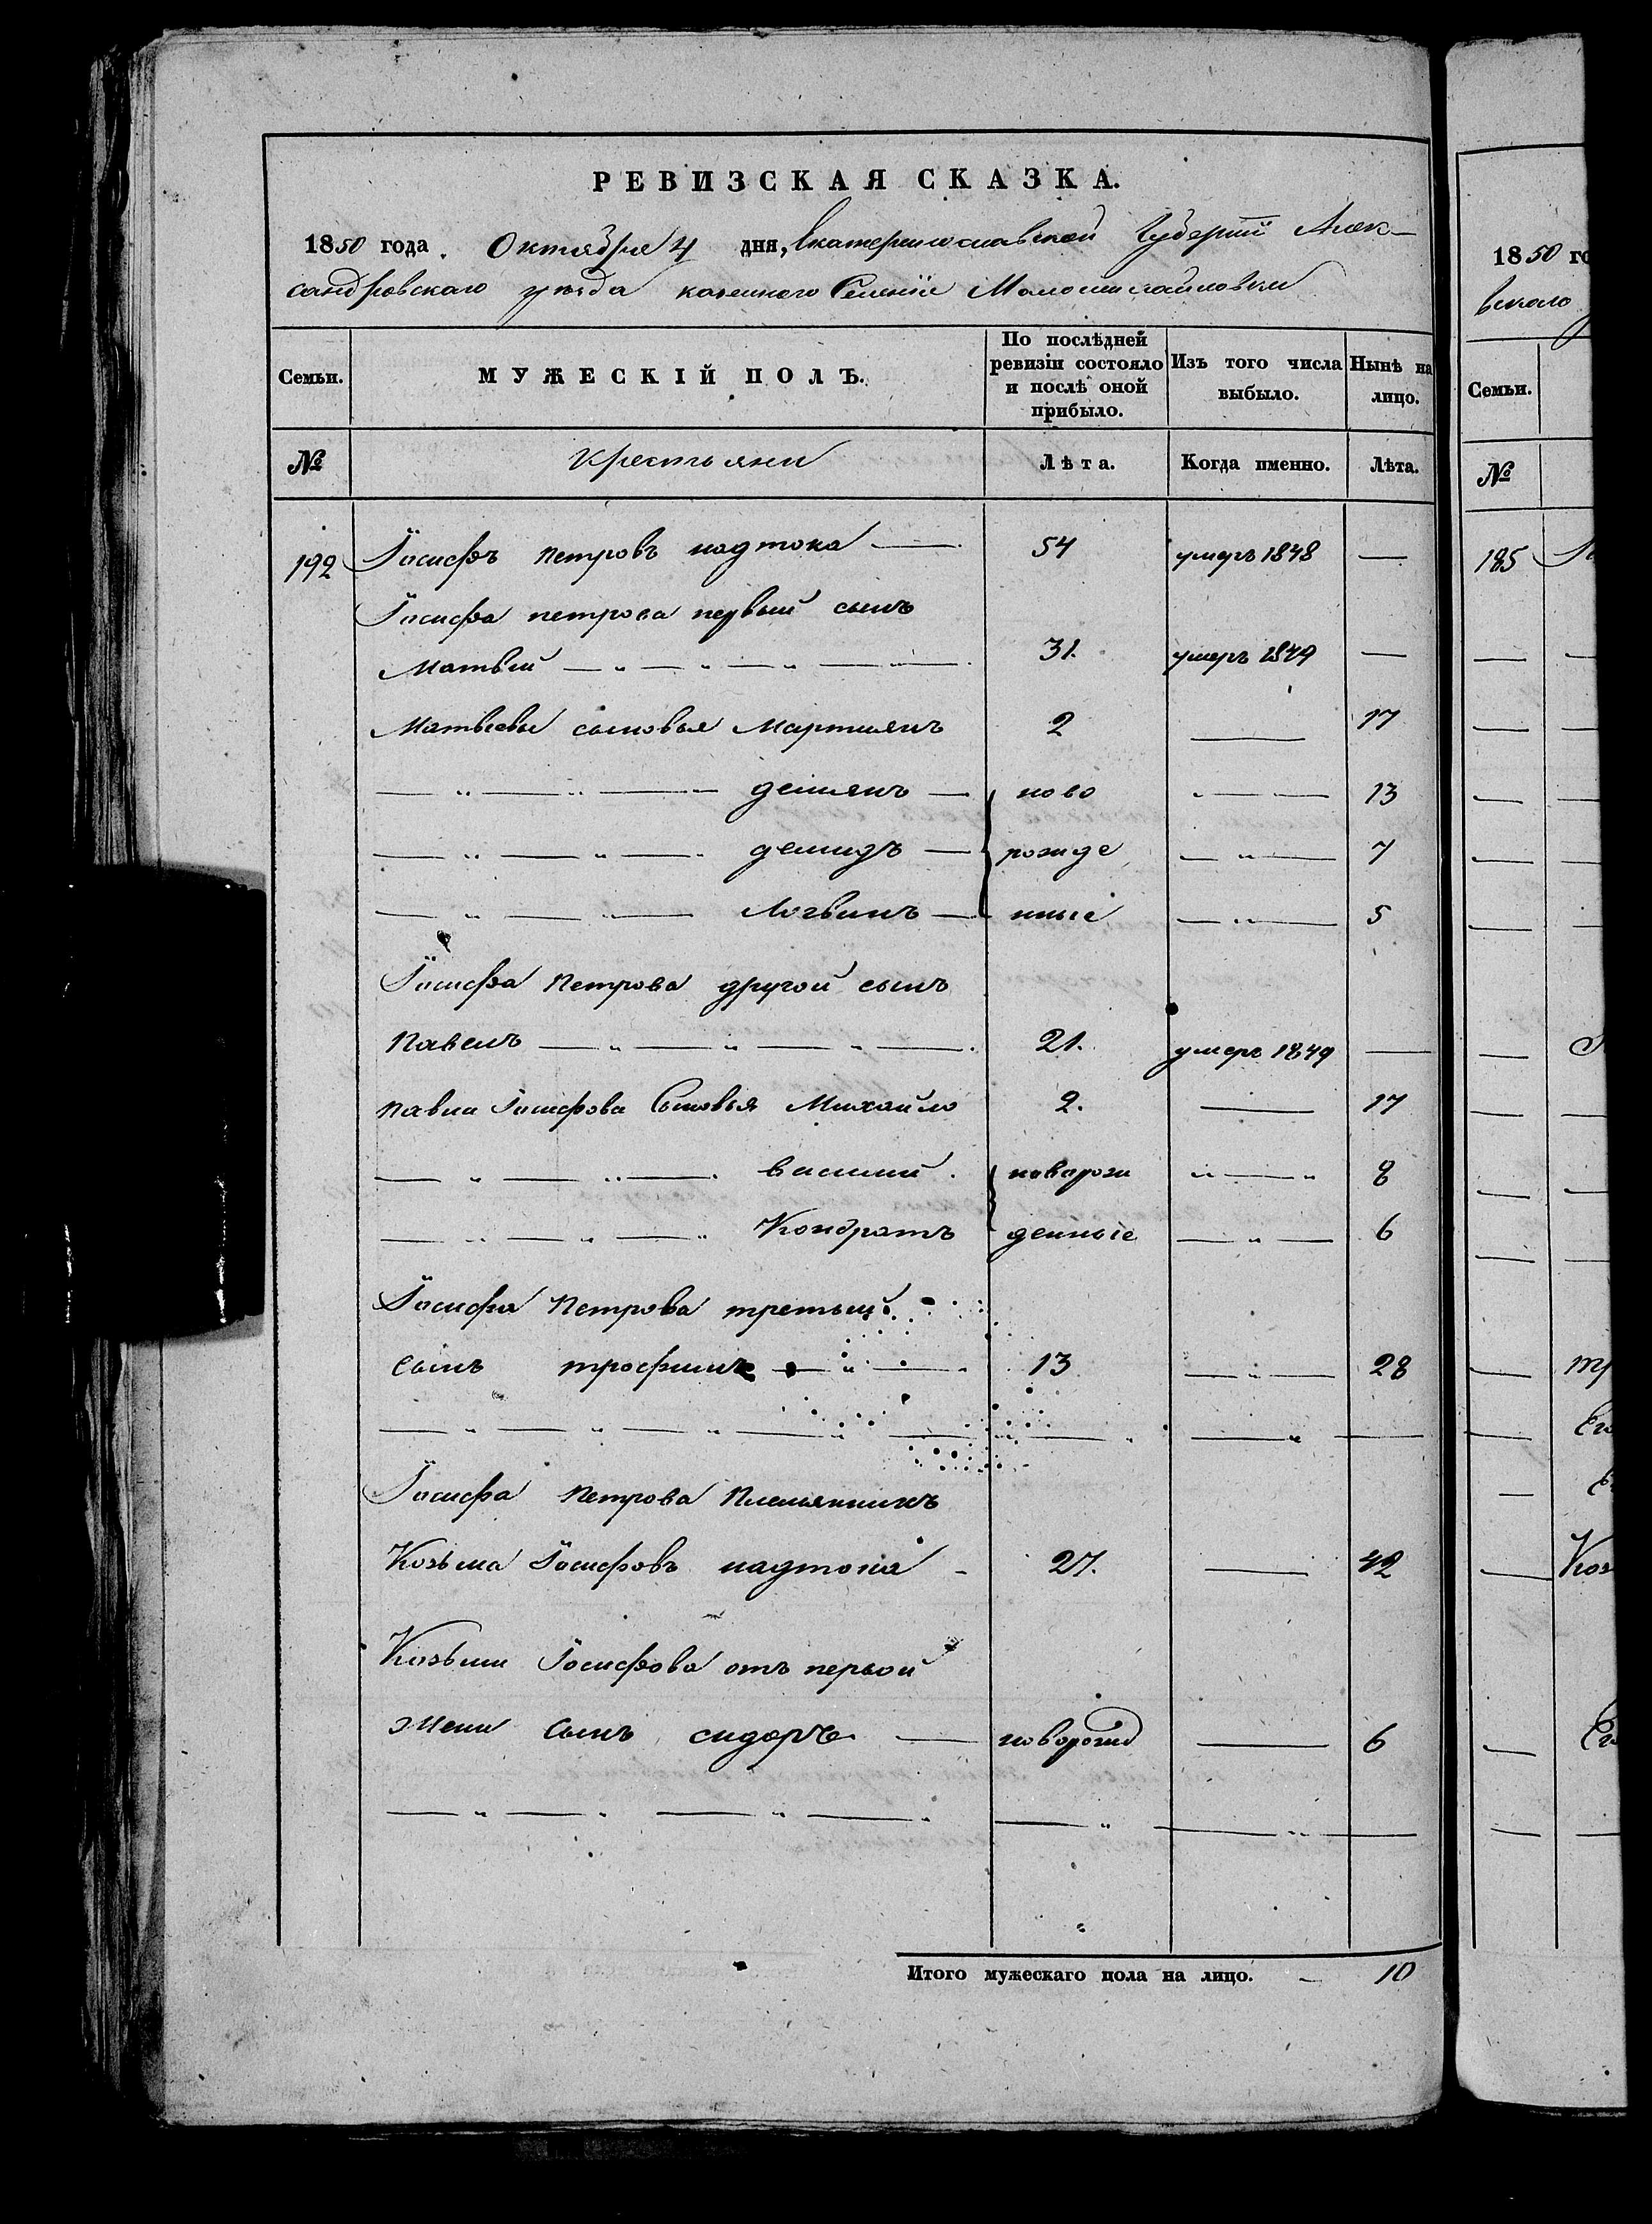 РЕВИЗСКАЯ СКАЗКА.
1850 года. Октября 4 дня, Екатеринославской Губернїи Алек-
сандровскаго уезда казенного Селенїя Маломихайловки
Семьи. МУЖЕСКІЙ ПОЛЪ. По послѣдней ревизіи состояло и послѣ оной прибыло. Изъ того числа выбыло. Нынѣ на лицо.
№ Крестьяни Лѣта. Когда именно. Лѣта.
192 Їосифъ Петровъ надтока — 54 умеръ 1848 —
Їосифа петрова первый сынъ
Матвей — „ — „ — „ — 31. умеръ 1849 —
Матвеевы сыновья Мартиянъ 2 — 17
— „ — „ — демянъ — ново — „ — 13
— „ — „ — демидъ — рожде — „ — 7
— „ — „ — Логвинъ — нные — „ — 5
Їосифа Петрова другой сынъ
Павелъ — „ — „ — „ — 21. умеръ 1849 —
Павла Їосифова Сыновья Михайло 2. — 17
— „ — „ — василий. новорож „ — „ 8
— „ — „ — „ Кондратъ денные — „ — 6
Їосифа Петрова третьий
Сынъ трофимъ — „ — 13 — „ — 28
— „ — „ — „ — „ — „ — „ —
Їосифа Петрова Племянникъ
Козьма Їосифовъ надтока - 27. — 42
Козьми Їосифова отъ первой
жени Сынъ сидоръ — поворожд — 6
— „ — „ — „ — „ — „ — „ —
Итого мужескаго пола на лицо. — 10
1850 го
вскаго
Семьи.
№
185